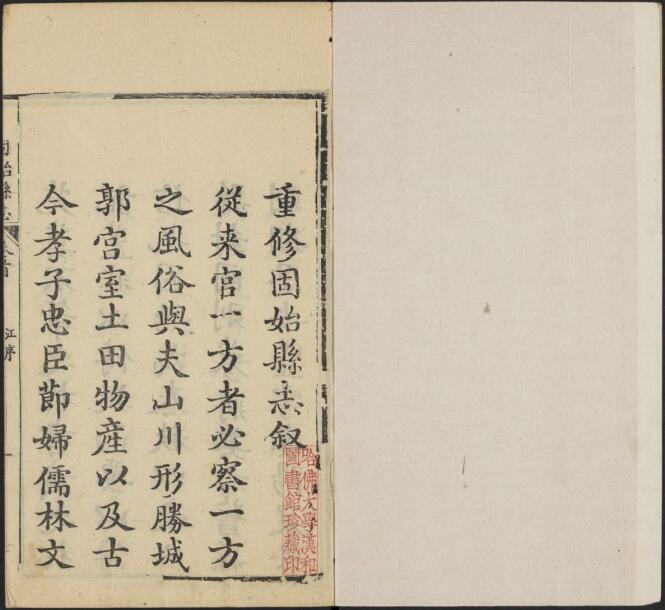 重修固始縣志叙
從来官一方者必察一方
之風俗與夫山川形勝城
郭宫室土田物産以及古
今孝子忠臣節婦儒林文
哈佛大學漢和
圖書館珍藏印
固始縣志
卷首
江序
一